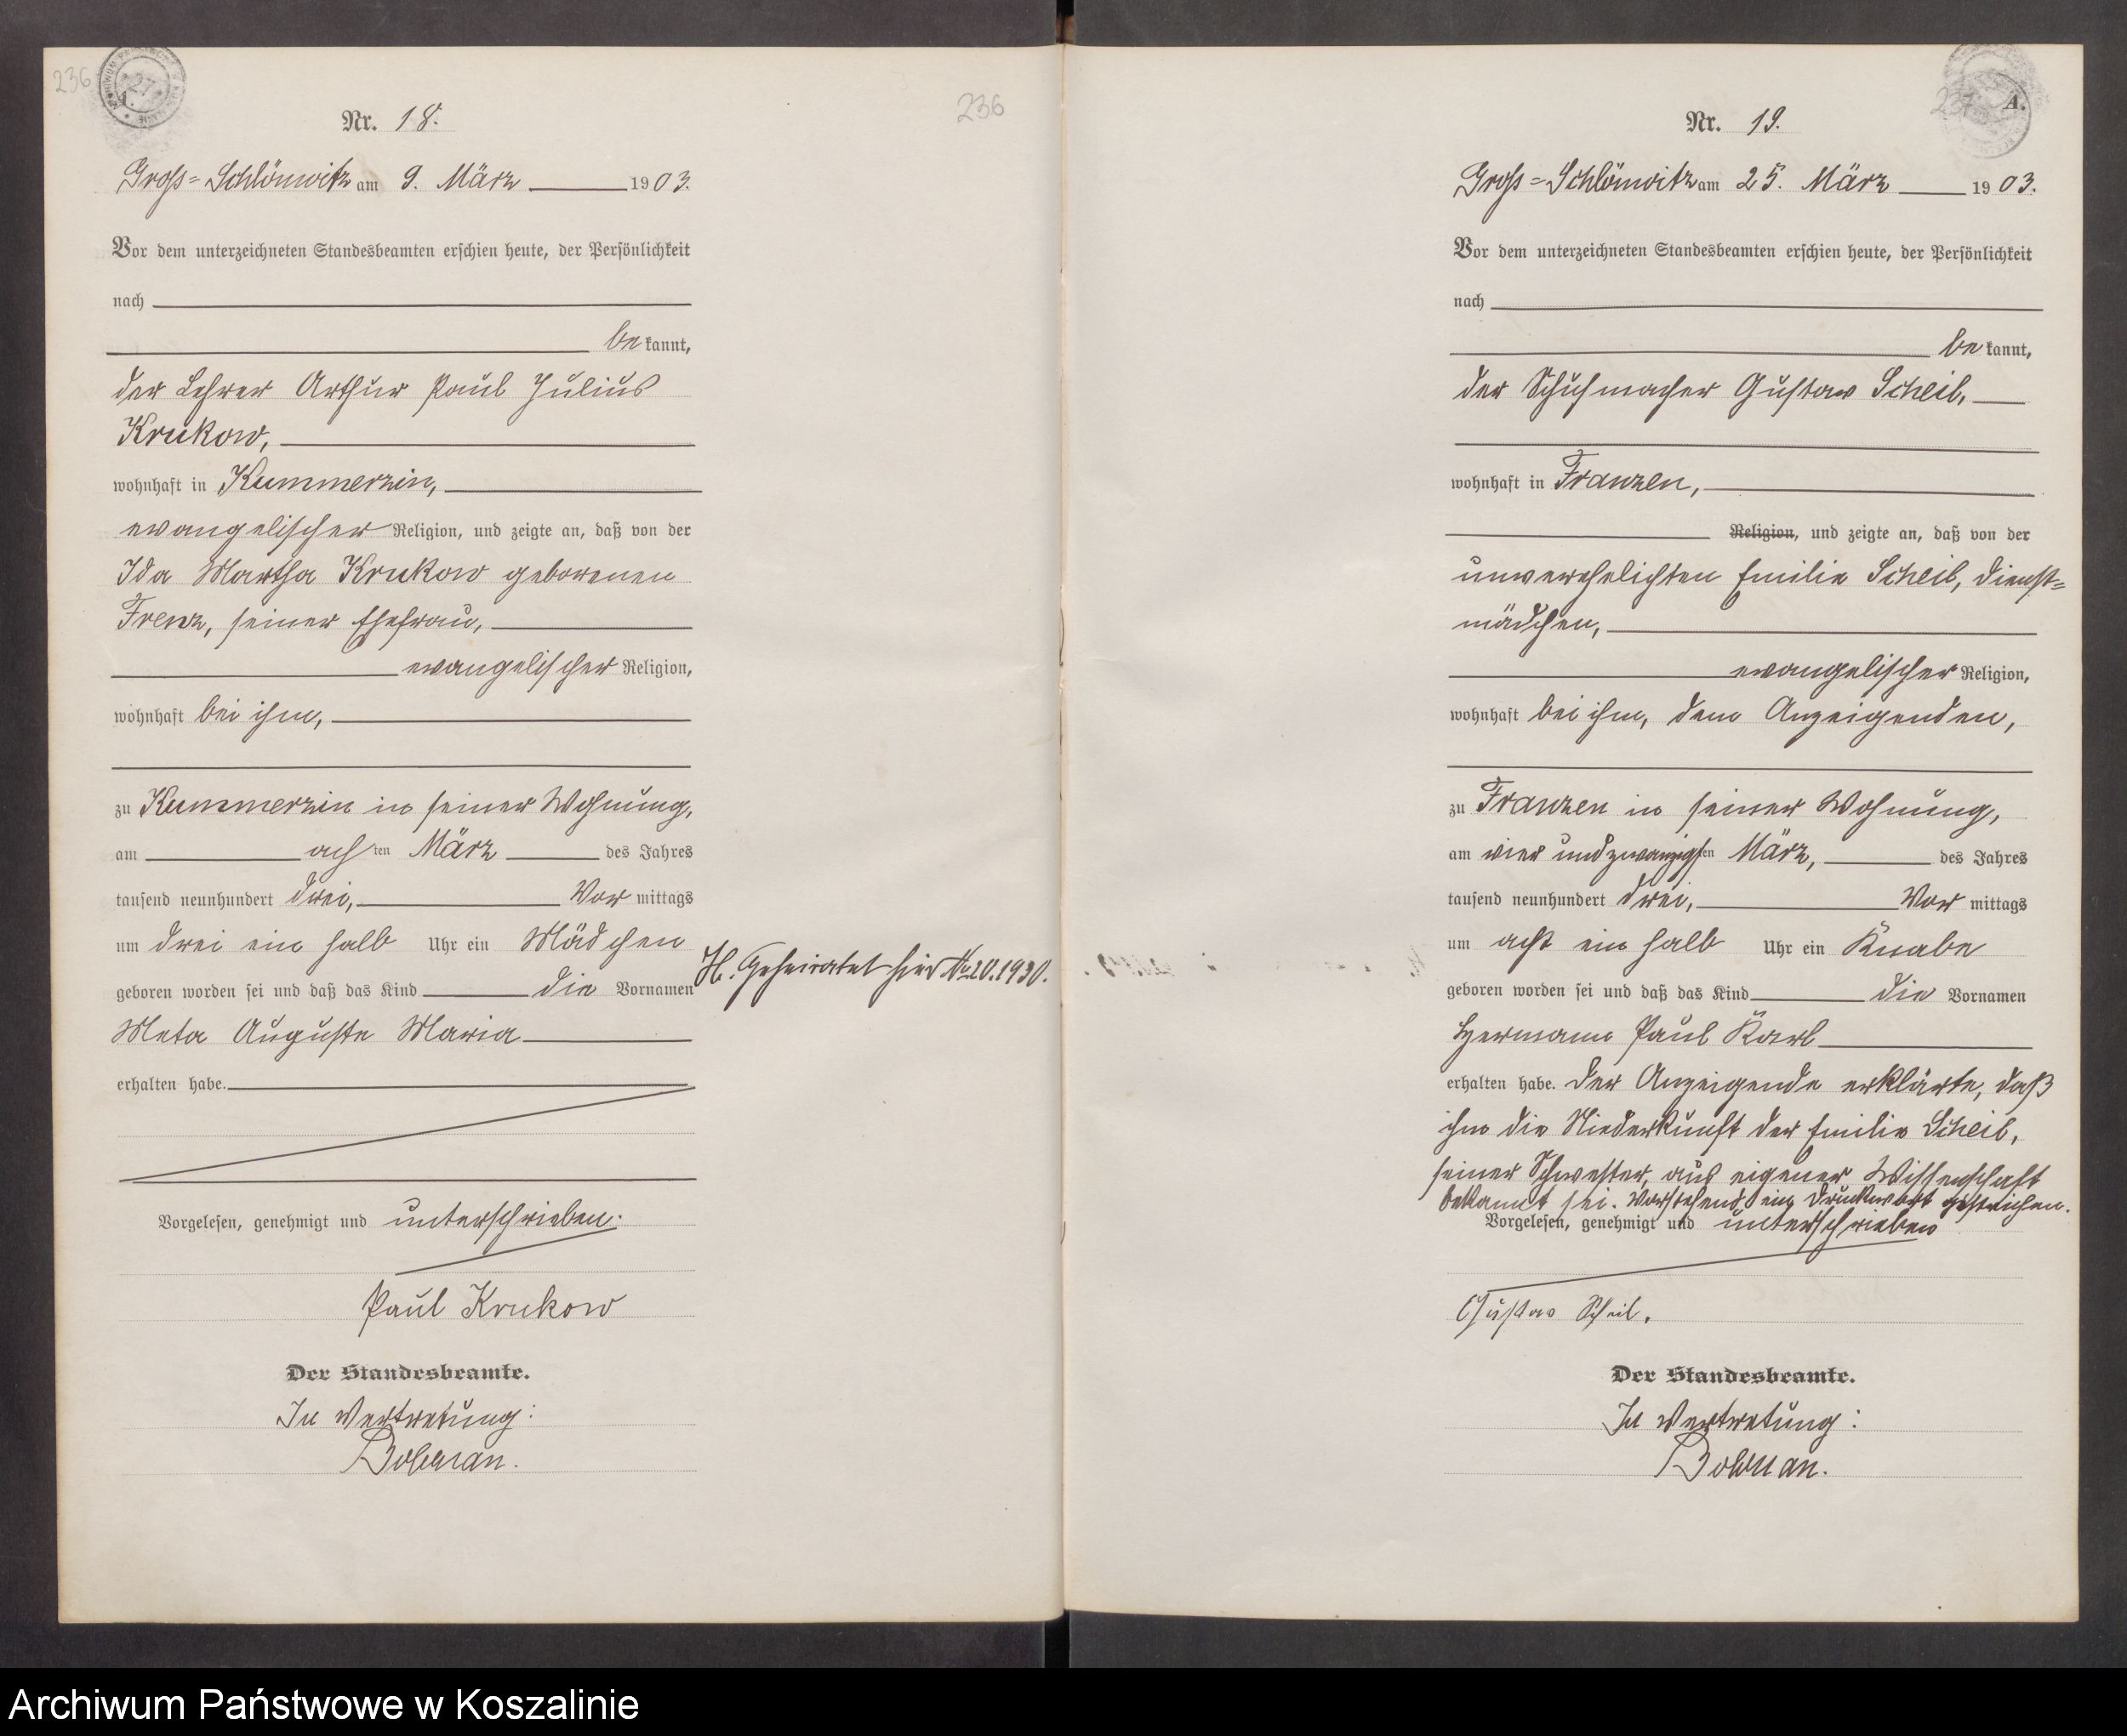 236
Nr. 18.
Gross-Schlönwitz am 9. März 1903.
Vor dem unterzeichneten Standesbeamten erschien heute, der Persönlichkeit
nach
bekannt,
der Lehrer Arthur Paul Julius
Krukow,
wohnhaft in Kummerzin,
evangelischer Religion, und zeigte an, daß von der
Ida Martha Krukow geborenen
Frenz, seiner Ehefrau,
evangelischer Religion,
wohnhaft bei ihm,
zu Kummerzin in seiner Wohnung,
am achten März des Jahres
tausend neunhundert drei, Vormittags
um drei ein halb Uhr ein Mädchen
geboren worden sei und daß das Kind die Vornamen
Meta Auguste Maria
erhalten habe.
Vorgelesen, genehmigt und unterschrieben.
Paul Krukow
Der Standesbeamte.
In Vertretung:
236
H. Geheiratet hier No 20.1930.
237
A.
Nr. 19.
Gross-Schlönwitz am 25. März 1903.
Vor dem unterzeichneten Standesbeamten erschien heute, der Persönlichkeit
nach
bekannt,
der Schuhmacher Gustav Scheil,
wohnhaft in Franzen,
Religion, und zeigte an, daß von der
unverehelichten Emilie Scheil, Dienst-
mädchen,
evangelischer Religion,
wohnhaft bei ihm, dem Anzeigenden,
zu Franzen in seiner Wohnung,
am vier und zwanzigsten März, des Jahres
tausend neunhundert drei, Vormittags
um acht ein halb Uhr ein Knabe
geboren worden sei und daß das Kind die Vornamen
Hermann Paul Karl
erhalten habe. Der Anzeigende erklärte, daß
ihm die Niederkunft der Emilie Scheil,
seiner Schwester, aus eigener Wissenschaft
bekannt sei. Vorstehend ein Druckwort gestrichen.
Vorgelesen, genehmigt und unterschrieben
Gustav Scheil.
Der Standesbeamte.
In Vertretung:
Archiwum Państwowe w Koszalinie